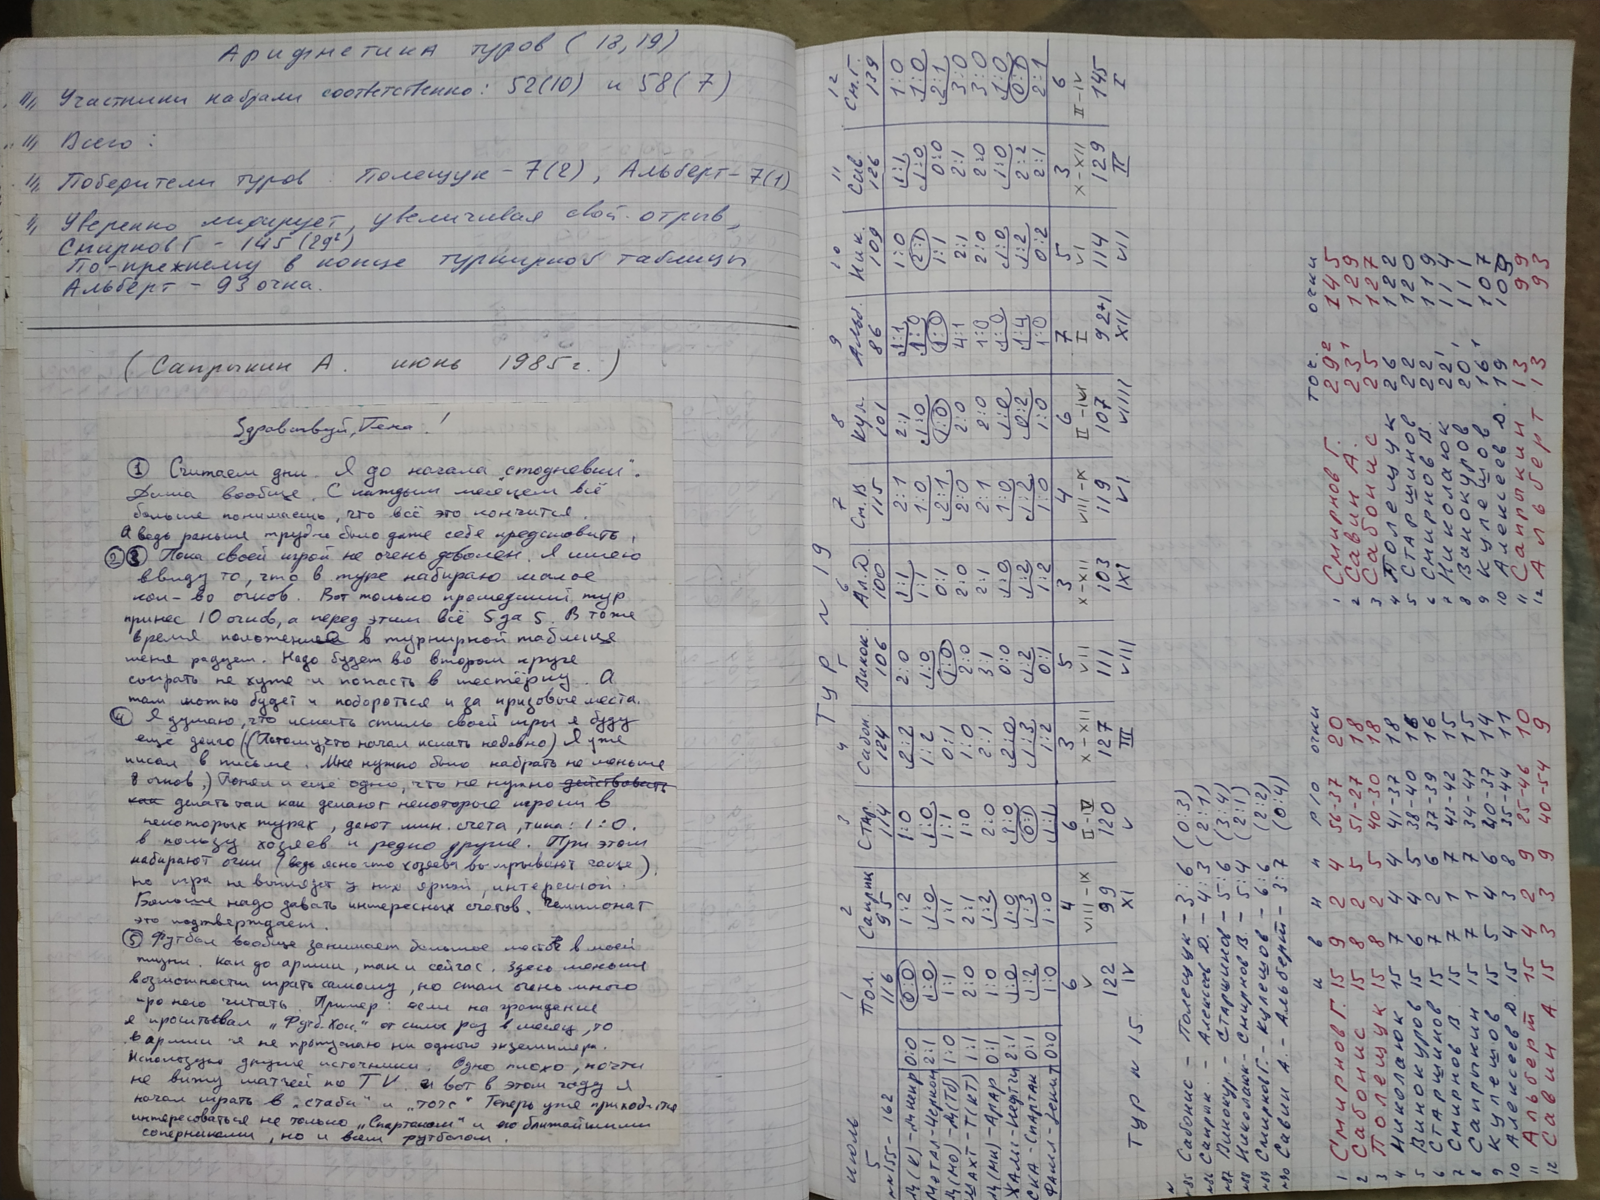 Арифметика туров (18,19)
Участники набрали соответственно: 52(10) и 58(7)
Всего:
Победители туров: Полещук - 7(2), Альберт - 7(1)
Уверенно лидирует, увеличивая свой отрыв,
Смирнов Г - 145 (29²)
По-прежнему в конце турнирной таблицы
Альберт - 93 очка.
(Сапрыкин А. июнь 1985г.)
Здравствуй, Гена!
① Считаем дни. Я до начала "стодневки".
Дима вообще. С каждым месяцем всё
больше понимаешь, что всё это кончится.
А ведь раньше трудно было даже себе представить.
② ③ Пока своей игрой не очень доволен. Я имею
ввиду то, что в туре набираю малое
кол-во очков. Вот только прошедший тур
принёс 10 очков, а перед этим всё 5 да 5. В тоже
время положение в турнирной таблице
меня радует. Надо будет во втором круге
сыграть не хуже и попасть в шестёрку. А
там можно будет и побороться и за призовые места.
④ Я думаю, что искать стиль своей игры я буду
ещё долго (Потому, что начал искать недавно) Я уже
писал в письме. Мне нужно было набрать не меньше
8 очков.) Понял и ещё одно, что не нужно действовать
как делать так как делают некоторые игроки в
некоторых турах, дают мин. счета, типа: 1:0.
в пользу хозяев и редко другие. При этом
набирают очки (ведь ясно что хозяева выигрывают чаще),
но игра не выглядит у них яркой, интересной.
Больше надо давать интересных счетов. Чемпионат
это подтверждает.
⑤ Футбол вообще занимает большое место в моей
жизни. Как до армии, так и сейчас. Здесь меньше
возможности играть самому, но стал очень много
про него читать. Пример: если на гражданке
я прочитывал "Футб.Хок." от силы раз в месяц, то
в армии я не пропускаю ни одного экземпляра.
Использую другие источники. Одно плохо, почти
не вижу матчей по TV. И вот в этом году я
начал играть в "стаби" и "тотс" Теперь уже приходится
интересоваться не только "Спартаком" и его ближайшими
соперниками, но и всем футболом.
Тур n 19
июль 1 2 3 4 5 6 7 8 9 10 11 12
5 Пол. Сапрык Стар. Сабон. Винок. Ал.Д См.В Кул. Альб. Ник. Сав. См.Г.
nn 155-162 116 95 114 124 106 100 115 101 86 109 126 139
Д(К)-Днепр 0:0 0:0 1:2 1:0 2:2 2:0 1:1 2:1 2:1 1:1 1:0 1:1 1:0
МЕТАЛ-Черном 2:1 1:0 1:0 1:0 1:2 1:0 1:1 1:0 1:0 1:0 2:1 1:0 1:0
Д(МО)-Д(Тб) 1:0 1:1 1:1 1:1 0:1 1:0 0:1 2:1 1:0 1:0 1:1 0:0 2:1
ШАХТ-Т(КТ) 1:1 2:0 2:1 1:0 1:0 2:0 2:0 2:0 2:0 4:1 2:1 2:1 3:0
Д(МИ)-Арар 0:1 1:0 1:2 2:0 2:1 3:1 2:1 2:1 2:0 1:0 2:0 2:0 3:0
Жальг-Нефтчи 2:1 1:0 1:0 2:0 2:0 0:0 1:0 1:0 1:0 1:0 1:0 1:0 1:0
СКА-Спартак 0:1 1:2 1:3 0:1 1:3 1:2 1:2 1:2 0:2 1:4 1:2 2:2 0:1
Факел-Зенит 0:0 1:0 1:0 1:1 1:2 0:1 1:2 1:0 1:0 1:0 0:2 2:1 2:1
6 4 6 3 5 3 4 6 7 5 3 6
V VIII-IX II-IV X-XII VII X-XII VII-X II-IVI I VI X-XII II-IV
122 99 120 127 111 103 119 107 92+1 114 129 145
IV XI V III VIII IXI VI VIIII XII VII II I
Тур n 15.
n85 Сабонис - Полещук - 3:6 (0:3)
n86 Сапрык. - Алексеев Д. - 4:3 (2:1)
n87 Винокур. - Старшинов - 5:6 (3:4)
n88 Николаюк - Смирнов В - 5:4 (2:1)
n89 Смирнов Г. - Кулешов - 6:6 (2:2)
n90 Савин А. - Альберт - 3:7 (0:4)
и в н п р/о очки
1 Смирнов Г. 15 9 2 4 56-37 20
2 Сабонис 15 8 2 5 51-27 18
3 Полещук 15 8 2 5 40-30 18
4 Николаюк 15 7 4 4 41-37 18
5 Винокуров 15 6 4 5 38-40 16
6 Старшинов 15 7 2 6 37-39 16
7 Смирнов В. 15 7 1 7 43-42 15
8 Сапрыкин 15 7 1 7 34-47 15
9 Кулешов 15 5 4 6 40-37 14
10 Алексеев Д. 15 4 3 8 35-44 11
11 Альберт 15 4 2 9 25-46 10
12 Савин А 15 3 3 9 40-54 9
точ. очки
1 Смирнов Г. 29² 145
2 Савин А. 23¹ 129
3 Сабонис 25 127
4 Полещук 26 122
5 Старшинов 22 120
6 Смирнов В. 22 119
7 Николаюк 22¹ 114
8 Винокуров 20¹ 111
9 Кулешов 16¹ 107
10 Алексеев Д. 19 103
11 Сапрыкин 13 99
12 Альберт 13 93